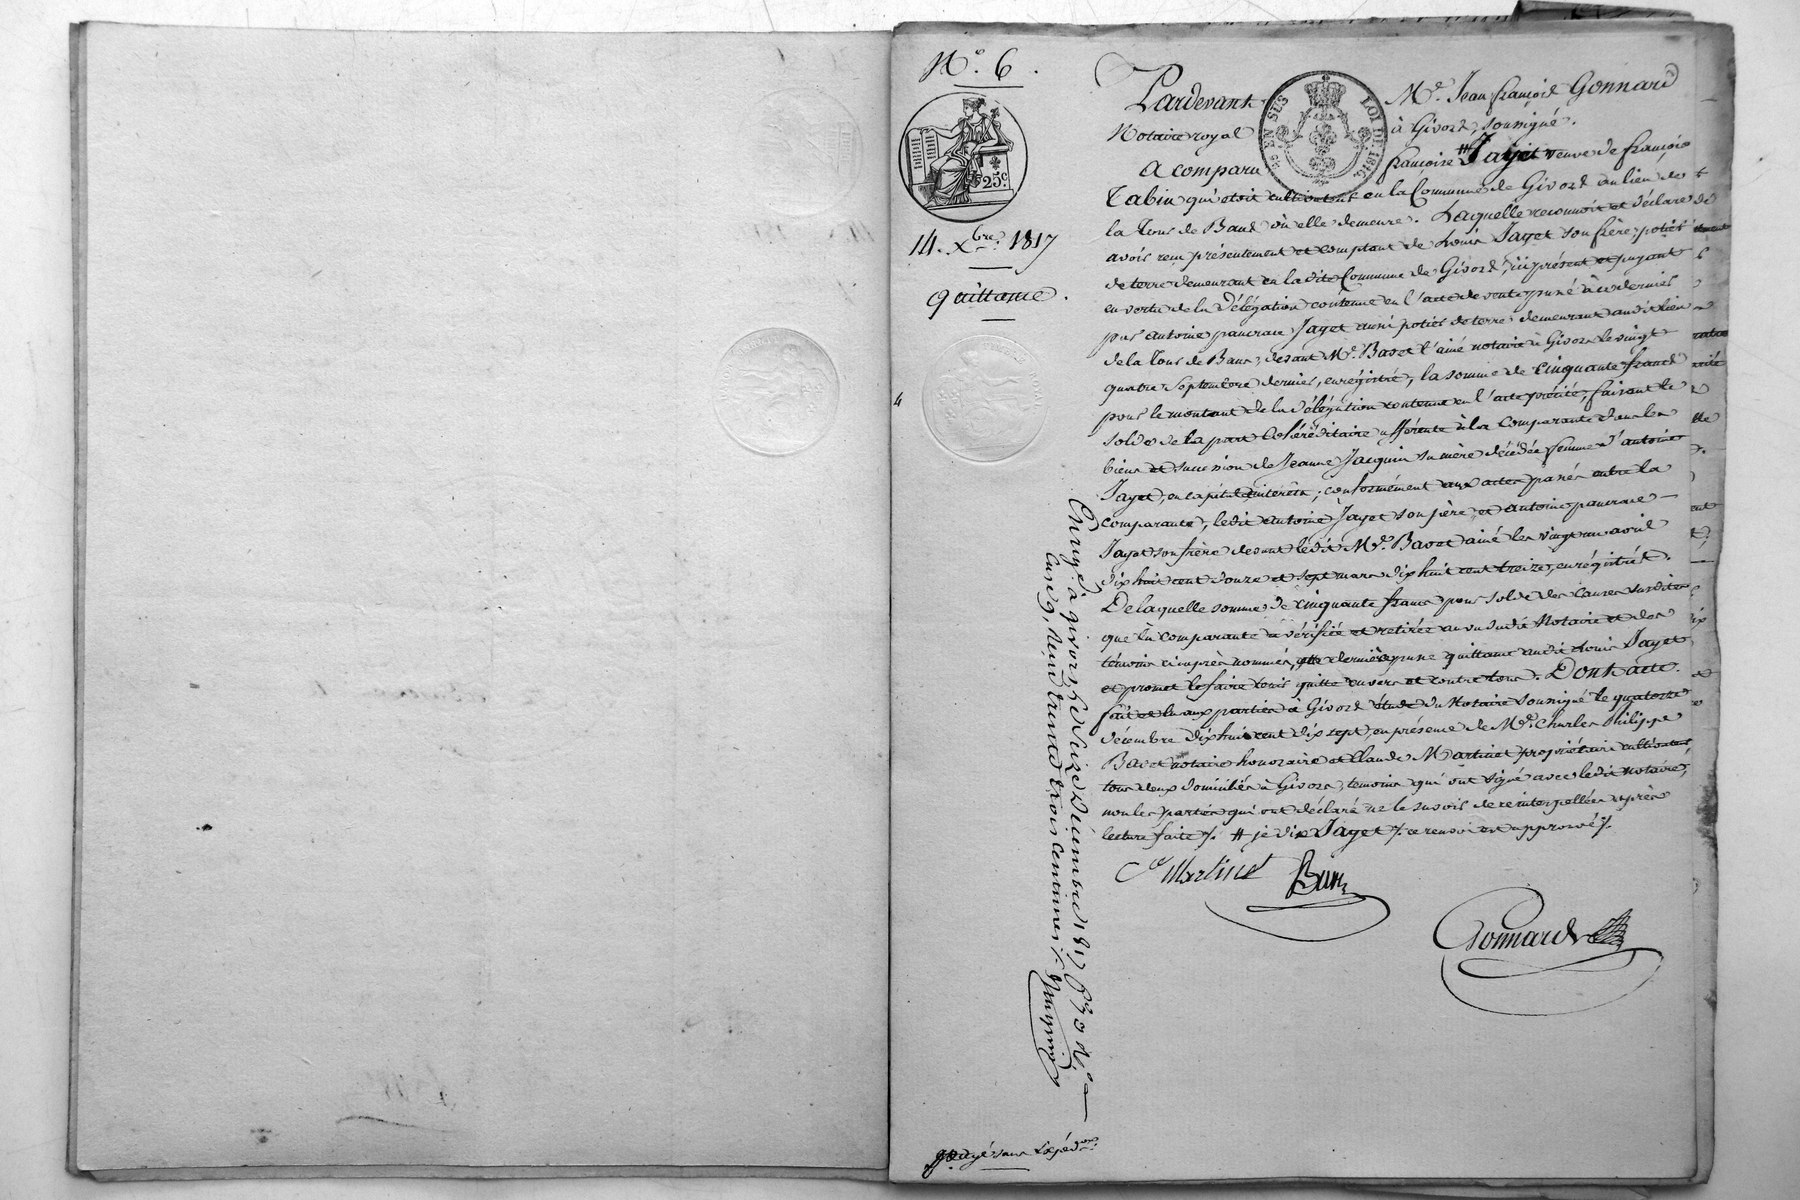 N.º 6.
25.c
14. Xbre. 1817
quittance.
4
EN SUS LOI DE 1816.
Pardevant Me. Jean françois Gonnard
Notaire royal à Givors, soussigné.
A comparu françoise # Jayet veuve de françois
Tabin qui étoit cultivateur en la Commune de Givors au lieu de
la Tour de Bans où elle demeure. Laquelle reconnoit et déclare
avoir reçu présentement et comptant de Louis Jayet son frère potier
de terre demeurant en la dite Commune de Givors, ici présent et payant
en vertu de la Délégation contenue en l'acte de vente passé à ce dernier
par antoine pancrace Jayet aussi potier de terre demeurant audit lieu
de la Tour de Bans, devant Me. Bavet l'ainé notaire à Givors le vingt
quatre Septembre dernier, enregistré, la somme de cinquante francs
pour le montant de la délégation contenue en l'acte précité, faisant le
solde de la part Cohéréditaire afférente à la comparante dans les
biens et succession de Jeanne Jacquin sa mère décédée femme d'antoine
Jayet, en capital & intérêts; conformément aux actes passés entre la
comparante, ledit antoine Jayet son père, et antoine pancrace
Jayet son frère devant ledit Me. Bavet ainé les vingt un avril
dix huit cent douze et sept mars dix huit cent treize, enregistrés.
De laquelle somme de cinquante francs pour solde des causes susdites
que la comparante a vérifiée et retirée au vu dudit Notaire et des
témoins ci après nommés, cette dernière passe quittance audit Louis Jayet
et promet le faire tenir quitte envers et contre tous. Dont acte.
fait et lu aux parties à Givors étude du Notaire soussigné le quatorze
décembre dix huit cent dix sept, en présence de Me. Charles Philippe
Bavet notaire honoraire et Claude Martinet propriétaire cultivateur
tous deux domiciliés à Givors, témoins qui ont signé avec ledit notaire,
non les parties qui ont déclaré ne le savoir de ce interpellées après
lecture faite /. # je dis Jayet /. ce renvoi est approuvé /.
Ce Martinet
Gonnard
Enregé. à givors, le seize Décembre 1817
Case 9, Reçu trente trois centimes /.